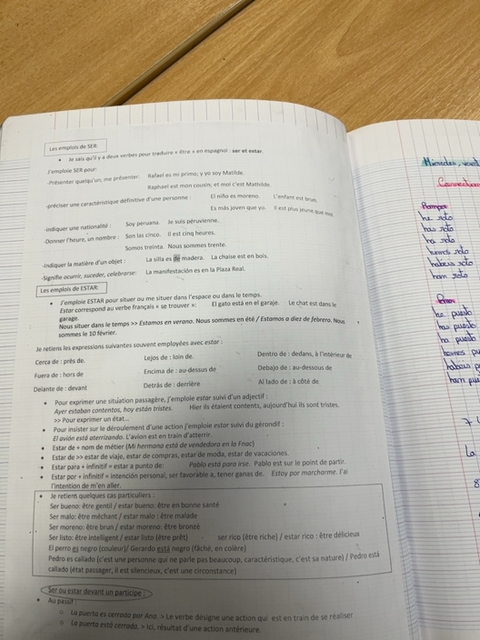 Les emplois de SER:
• Je sais qu'il y a deux verbes pour traduire « être » en espagnol : ser et estar.
J'emploie SER pour:
-Présenter quelqu'un, me présenter: Rafael es mi primo; y yo soy Matilde.
Raphael est mon cousin, et moi c'est Mathilde.
-préciser une caractéristique définitive d'une personne : El niño es moreno. L'enfant est brun.
Es más joven que yo. Il est plus jeune que moi.
-indiquer une nationalité : Soy peruana. Je suis péruvienne.
-Donner l'heure, un nombre : Son las cinco. Il est cinq heures.
Somos treinta. Nous sommes trente.
-indiquer la matière d'un objet : La silla es de madera. La chaise est en bois.
-Signifie ocurrir, suceder, celebrarse: La manifestación es en la Plaza Real.
Les emplois de ESTAR:
• J'emploie ESTAR pour situer ou me situer dans l'espace ou dans le temps.
Estar correspond au verbe français « se trouver »: El gato está en el garaje. Le chat est dans le
garage.
Nous situer dans le temps >> Estamos en verano. Nous sommes en été / Estamos a diez de febrero. Nous
sommes le 10 février.
Je retiens les expressions suivantes souvent employées avec estar :
Cerca de : près de. Lejos de : loin de. Dentro de : dedans, à l'intérieur de
Fuera de : hors de Encima de : au-dessus de Debajo de : au-dessous de
Delante de : devant Detrás de : derrière Al lado de : à côté de
• Pour exprimer une situation passagère, j'emploie estar suivi d'un adjectif :
Ayer estaban contentos, hoy están tristes. Hier ils étaient contents, aujourd'hui ils sont tristes.
>> Pour exprimer un état...
• Pour insister sur le déroulement d'une action j'emploie estar suivi du gérondif :
El avión está aterrizando. L'avion est en train d'atterrir.
• Estar de + nom de métier (Mi hermana está de vendedora en la Fnac)
• Estar de >> estar de viaje, estar de compras, estar de moda, estar de vacaciones.
• Estar para + infinitif = estar a punto de: Pablo está para irse. Pablo est sur le point de partir.
• Estar por + infinitif = intención personal, ser favorable a, tener ganas de. Estoy por marcharme. J'ai
l'intention de m'en aller.
• Je retiens quelques cas particuliers :
Ser bueno: être gentil / estar bueno: être en bonne santé
Ser malo: être méchant / estar malo : être malade
Ser moreno: être brun / estar moreno: être bronzé
Ser listo: être intelligent / estar listo (être prêt) ser rico (être riche) / estar rico : être délicieux
El perro es negro (couleur)/ Gerardo está negro (fâché, en colère)
Pedro es callado (c'est une personne qui ne parle pas beaucoup, caractéristique, c'est sa nature) / Pedro está
callado (état passager, il est silencieux, c'est une circonstance)
Ser ou estar devant un participe :
• Au passif :
○ La puerta es cerrada por Ana. > Le verbe désigne une action qui est en train de se réaliser
○ La puerta está cerrada. > Ici, résultat d'une action antérieure.
Miércoles,
Romper
he roto
has roto
ha roto
hemos roto
habéis roto
han roto
he puesto
has puesto
ha puesto
hemos
habéis
han